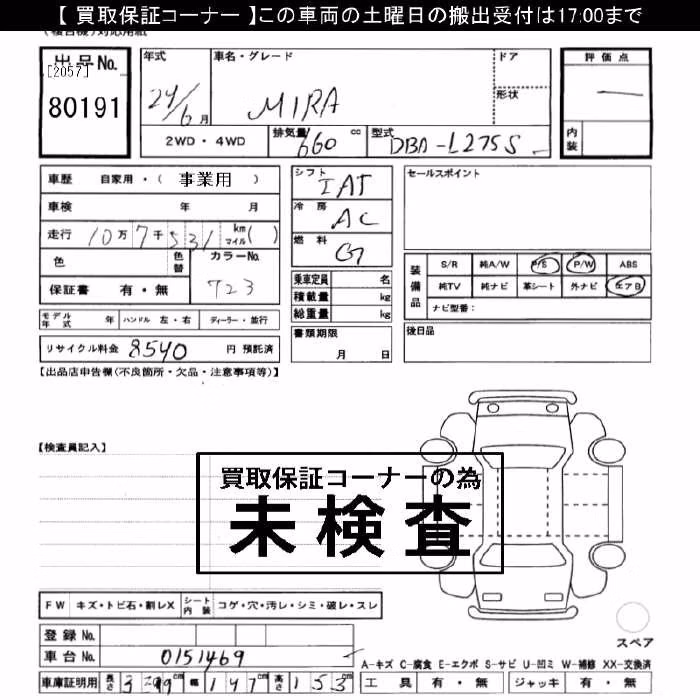 【 買取保証コーナー 】この車両の土曜日の搬出受付は17:00まで
出品No.
[2057]
80191
年式
24/6月
車名・グレード
MIRA
ドア
形状
評価点
内装
2WD・4WD
排気量 660 cc
型式 DBA-L275S
車歴 自家用・( 事業用 )
車検 年 月
走行 10万7千531 km マイル( )
色
色替
カラーNo.
723
保証書 有・無
モデル年式 年
ハンドル 左・右
ディーラー・並行
リサイクル料金 8540 円 預託済
シフト IAT
冷房 AC
燃料 G
乗車定員 名
積載量 kg
総重量 kg
書類期限
月 日
セールスポイント
装備品
S/R 純A/W P/S P/W ABS
純TV 純ナビ 革シート 外ナビ エアB
ナビ型番:
後日品
【出品店申告欄(不良箇所・欠品・注意事項等)】
【検査員記入】
買取保証コーナーの為
未検査
FW キズ・トビ石・割レX
シート内装 コゲ・穴・汚レ・シミ・破レ・スレ
登録No.
車台No. 0151469
スペア
A-キズ C-腐食 E-エクボ S-サビ U-凹ミ W-補修 XX-交換済
車庫証明用 長さ 339cm 幅 147cm 高さ 153cm
工具 有・無 ジャッキ 有・無